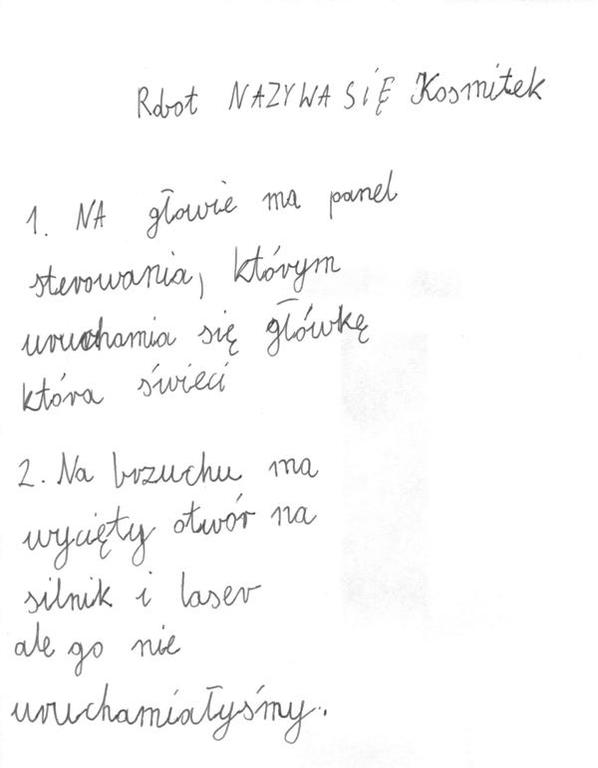 Robot NAZYWA SIĘ Kosmitek
1. NA głowie ma panel
sterowania, którym
uruchamia się główkę
która świeci
2. Na brzuchu ma
wycięty otwór na
silnik i laser
ale go nie
uruchamiałyśmy.